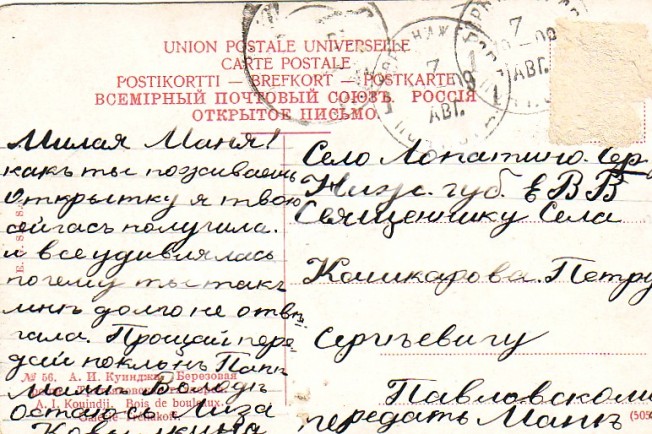 UNION POSTALE UNIVERSELLE
CARTE POSTALE
POSTIKORTTI — BREFKORT — POSTKARTE
ВСЕМІРНЫЙ ПОЧТОВЫЙ СОЮЗЪ. РОССІЯ
ОТКРЫТОЕ ПИСЬМО.
7
АВГ.
09
7
АВГ.
09
Милая Маня!
какъ ты поживаешь
открытку я твою
сейчасъ получила.
и все удивлялась
почему ты такъ
мнѣ долго не отвѣ
чала. Прощай пере
дай поклонъ Папѣ
Мамѣ Володѣ
остаюсь Лиза
Село Лопатино. Сер
Ниж. губ. ЕВВ
Священнику Села
Кашкарова. Петру
Сергѣевичу
Павловскому
передать Манѣ
№ 56. А. И. Куинджи. Березовая
A. I. Kouindji. Bois de bouleaux.
Galerie Tretiakoff.
(505